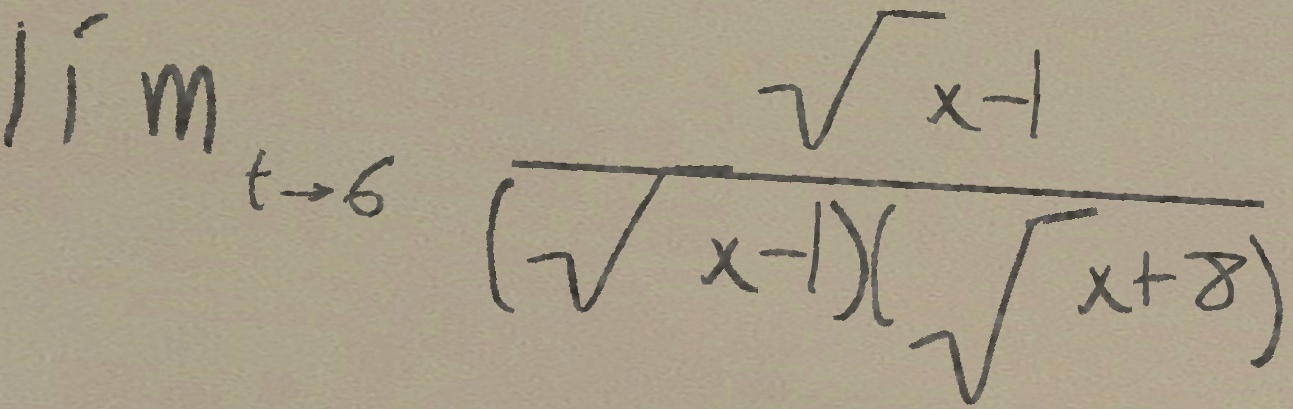 \lim_{t \to 6} \frac{\sqrt{x}-1}{(\sqrt{x}-1)(\sqrt{x}+8)}